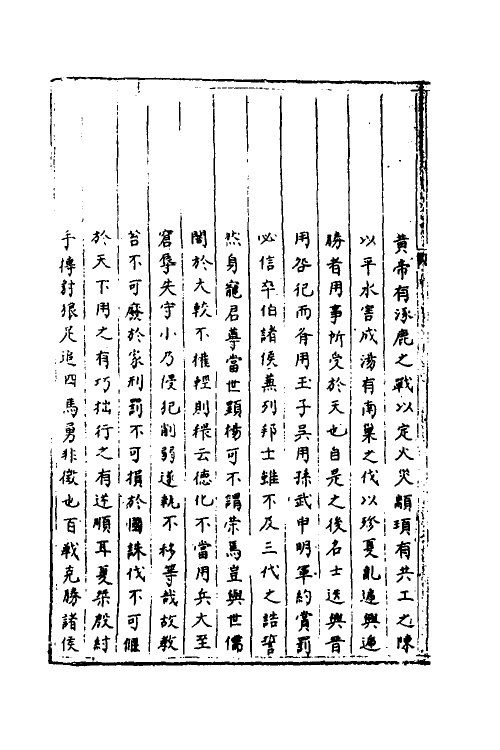 黄帝有涿鹿之戰以定火災顓頊有共工之陳
以平水害成湯有南巢之伐以殄夏亂遞興遞
勝者用事所受於天也自是之後名士迭興晋
用咎犯而齊用王子吳用孫武申明軍約賞罰
必信卒伯諸侯蕪列邦士雖不及三代之誥誓
然身寵君尊當世顕楊可不謂崇焉豈與世儒
闇於大較不權輕則猥云德化不當用兵大至
窘辱失守小乃侵犯削弱遂執不移等哉故教
笞不可廢於家刑罰不可損於國誅伐不可偃
於天下用之有巧拙行之有逆順耳夏桀殷紂
手搏豺狼足追四馬勇非微也百戰克勝諸侯